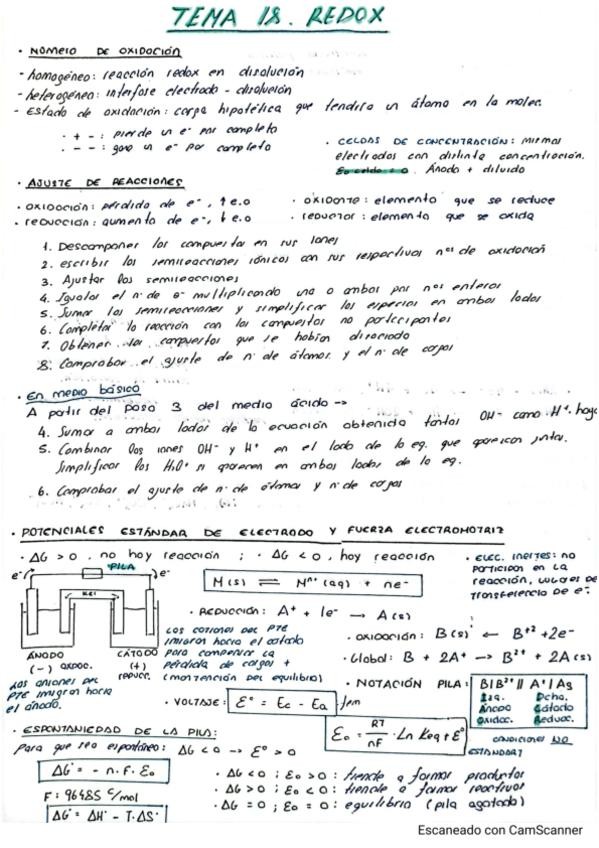 TEMA 18. REDOX
• NÚMERO DE OXIDACIÓN
- homogéneo: reacción redox en disolución
- heterogéneo: interfase electrodo - disolución
- Estado de oxidación: carga hipotética que tendría un átomo en la molec.
· + - : pierde un e⁻ por completo
· - - : gana un e⁻ por completo
• CELDAS DE CONCENTRACIÓN: mismos
electrodos con distinta concentración.
Eo celda = 0. Ánodo + diluido
• AJUSTE DE REACCIONES
• oxidación: pérdida de e⁻, ↑ e.o
• reducción: aumento de e⁻, ↓ e.o
• oxidante: elemento que se reduce
• reductor: elemento que se oxida
1. Descomponer los compuestos en sus iones
2. escribir las semireacciones iónicas con sus respectivos nºs de oxidación
3. Ajustar las semireacciones
4. Igualar el nº de e⁻ multiplicando una o ambas por nos enteros
5. Sumar las semireacciones y simplificar las especies en ambos lados
6. Completar la reacción con los compuestos no participantes
7. Obtener los compuestos que se habían disociado
8. Comprobar el ajuste de nº de átomos y el nº de cargas
• En medio básico
A partir del paso 3 del medio ácido ->
4. Sumar a ambos lados de la ecuación obtenida tantos OH⁻ como H⁺ haya
5. Combinar los iones OH⁻ y H⁺ en el lado de la eq. que aparezcan juntos.
Simplificar los H₂O si aparecen en ambos lados de la eq.
6. Comprobar el ajuste de nº de átomos y nº de cargas
• POTENCIALES ESTÁNDAR DE ELECTRODO Y FUERZA ELECTROMOTRIZ
• ΔG > 0, no hay reacción ; • ΔG < 0, hay reacción
• ELEC. INERTES: no
participan en la
reacción, lugares de
transferencia de e⁻.
PILA
e⁻
e⁻
KCl
M(s) ⇌ Mⁿ⁺(aq) + ne⁻
• REDUCCIÓN: A⁺ + 1e⁻ → A(s)
Los cationes del PTE
migran hacia el cátodo
para compensar la
pérdida de cargas +
(mantención del equilibrio)
• OXIDACIÓN: B(s) ← B⁺² + 2e⁻
• Global: B + 2A⁺ → B²⁺ + 2A(s)
ÁNODO
(-) oxidac.
CÁTODO
(+)
reducc.
Los aniones del
PTE migran hacia
el ánodo.
• NOTACIÓN PILA: B|B²⁺ || A⁺|Ag
Izq. Dcha.
Ánodo Cátodo
Oxidac. Reducc.
• VOLTAJE: E° = Ec - Ea fem
E₀ = RT/nF · Ln Keq + E°
CONDICIONES NO
ESTÁNDAR↑
• ESPONTANEIDAD DE LA PILA:
Para que sea espontánea: ΔG < 0 -> E° > 0
ΔG° = - n · F · E₀
F: 96485 C/mol
ΔG° = ΔH° - T·ΔS°
• ΔG < 0 ; E₀ > 0 : tiende a formar productos
• ΔG > 0 ; E₀ < 0 : tiende a formar reactivos
• ΔG = 0 ; E₀ = 0 : equilibrio (pila agotada)
Escaneado con CamScanner